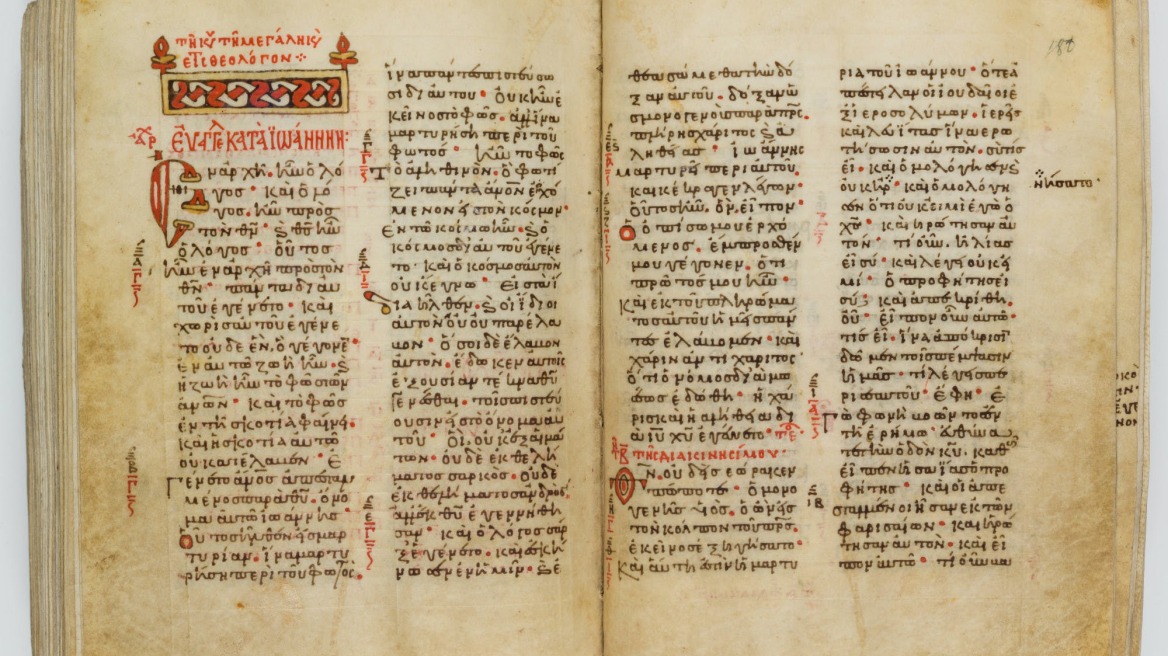 τῆ κυ τῆ μεγάλη κυ
θεολόγον
Ἐυαγγε κατὰ ϊωάννην
Ἐν ἀρχῆ ἦν ὁ λό
γος · καὶ ὁ λό
γος ἦν πρὸς
τὸν θν · καὶ θς ἦν
ὁ λόγος · οὗτος
ἦν ἐν ἀρχῆ πρὸς τὸν
θν · πάντα δι αυ
τοῦ ἐγένετο · καὶ
χωρὶς αυτοῦ ἐγένε
το οὐδὲ ἕν. ὃ γέγονεν
ἐν αυτῶ ζωὴ ἦν · καὶ
ἡ ζωὴ ἦν τὸ φῶς τῶν
ἀνων · καὶ τὸ φῶς
ἐν τῆ σκοτία φαίνει ·
καὶ ἡ σκοτία αυτὸ
οὐ κατέλαβεν · Ἐ
γένετο ανος ἀπεσταλ
μένος παρὰ θυ · ὄνο
μα αὐτῶ ϊωάννης ·
οὗτος ἦλθεν εἰς μαρ
τυρίαν · ἵνα μαρτυ
ρήση περὶ τοῦ φωτός ·
ἵνα πάντες πιστεύσω
σι δι αυτου · οὐκ ἦν ἐ
κεῖνος τὸ φῶς · αλλ ἵνα
μαρτυρήση περὶ τοῦ
φωτός · ἦν τὸ φῶς
τὸ ἀληθινὸν · ὃ φωτί
ζει πάντα ανον ἐρχό
μενον εἰς τὸν κόσμον ·
Ἐν τῶ κόσμω ἦν · καὶ ὁ
κόσμος δι αυτοῦ εγένε
το · καὶ ὁ κόσμος αυτὸν
οὐκ έγνω · Εἰς τὰ ἴ
δια ἦλθεν · καὶ οἱ ἴδιοι
αυτὸν οὐ παρέλα
βον · ὅσοι δὲ ἔλαβον
αυτὸν · ἔδωκεν αυτοῖς
ἐξουσίαν τέκνα θυ
γενέσθαι · τοῖς πιστεύ
ουσιν εἰς τὸ ὄνομα αυ
τοῦ · οἳ οὐκ ἐξ αἱμά
των · οὐδὲ ἐκ θελή
ματος σαρκὸς · οὐδὲ
ἐκ θελήματος ἀνδρὸς
αλλ ἐκ θυ ἐγεννήθη
σαν · καὶ ὁ λόγος σαρξ
ἐγένετο · καὶ ἐσκή
νωσεν ἐν ἡμῖν · καὶ ἐ
θεασάμεθα τὴν δό
ξαν αυτοῦ · δόξαν ὡς
μονογενοῦς παρὰ πρς
πλήρης χάριτος καὶ ἀ
ληθείας · ϊωάννης
μαρτυρεῖ περὶ αυτοῦ
καὶ κέκραγεν λέγων ·
οὗτος ἦν. ὃν εἶπον ·
Ὁ ὀπίσω μου ἐρχό
μενος. ἔμπροσθέν
μου γέγονεν. ὅτι
πρῶτός μου ἦν ·
Καὶ ἐκ τοῦ πληρώμα
τος αυτοῦ ἡμεῖς πάν
τες ἐλάβομεν · καὶ
χάριν ἀντὶ χάριτος ·
ὅτι ὁ νόμος διὰ μω
σέως ἐδόθη · ἡ χά
ρις καὶ ἡ ἀλήθεια δι
ὰ ιυ χυ εγένετο · τε
β τῆς διακινησίμου ·
Θν οὐδεὶς ἑώρακεν
πώποτε · ὁ μονο
γενὴς υἱός · ὁ ὢν εἰς
τὸν κόλπον τοῦ πρς.
ἐκεῖνος ἐξηγήσατο ·
Καὶ αὕτη ἐστὶν ἡ μαρτυ
ρία τοῦ ιωάννου · ὅτε ἀ
πέστειλαν οἱ ιουδαῖοι ἐ
ξ ιεροσολύμων · ἱερεῖς
καὶ λευΐτας ἵνα ερω
τήσωσιν αυτὸν · σὺ τίς
εἶ · καὶ ὡμολόγησεν καὶ
οὐκ ἠρ · καὶ ὡμολόγη
σεν ὅτι οὐκ εἰμὶ ἐγὼ ὁ
χς · καὶ ἠρώτησαν αυ
τὸν · τί οὖν. ἠλίας
εἶ σύ · καὶ λέγει οὐκ εἰ
μί · ὁ προφήτης εἶ
σύ · καὶ ἀπεκρίθη.
οὔ · εἶπον οὖν αυτῶ ·
τίς εἶ · ἵνα ἀπόκρισιν
δῶμεν τοῖς πέμψασιν
ἡμᾶς · τί λέγεις πε
ρὶ σεαυτοῦ · ἔφη · Ἐ
γὼ φωνὴ βοῶντος ἐν
τῆ ἐρήμω · εὐθύνα
τε τὴν ὁδὸν κυ. καθὼς
εἶπεν ἡσαΐας ὁ προ
φήτης · καὶ οἱ ἀπε
σταλμένοι ἦσαν ἐκ τῶν
φαρισαίων · καὶ ἠρώ
τησαν αυτὸν · καὶ εἶ
πον αυτῶ · τί οὖν βα
νήσατο ·